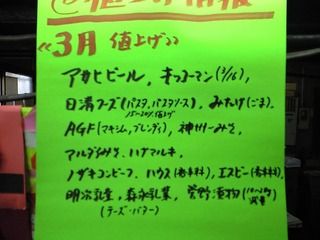 値上げ情報
《3月 値上げ》
アサヒビール, キッコーマン(2/16),
日清フーズ(パスタ, パスタソース), みたけ(ごま),
15〜20%値上げ
AGF(マキシム, ブレンディ), 神州一みそ,
アルプスみそ, ハナマルキ,
ノザキコンビーフ, ハウス(香辛料), エスビー(香辛料),
明治乳業, 森永乳業, 菅野漬物
(チーズ・バター)